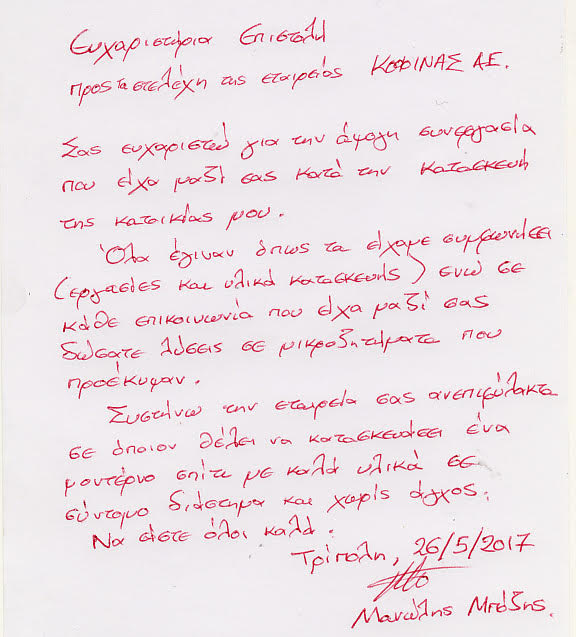 Ευχαριστήρια Επιστολή
προς τα στελέχη της εταιρείας ΚΟΦΙΝΑΣ Α.Ε.
Σας ευχαριστώ για την άψογη συνεργασία
που είχα μαζί σας κατά την κατασκευή
της κατοικίας μου.
Όλα έγιναν όπως τα είχαμε συμφωνήσει
(εργασίες και υλικά κατασκευής) ενώ σε
κάθε επικοινωνία που είχα μαζί σας
δώσατε λύσεις σε μικροζητήματα που
προέκυψαν.
Συστήνω την εταιρεία σας ανεπιφύλακτα
σε όποιον θέλει να κατασκευάσει ένα
μοντέρνο σπίτι με καλά υλικά σε
σύντομο διάστημα και χωρίς άγχος.
Να είστε όλοι καλά.
Τρίπολη, 26/5/2017
Μανώλης Μπόζης.